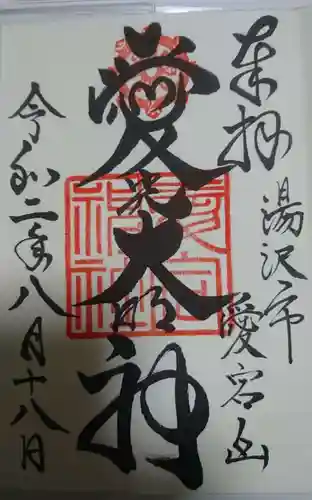 奉拝
湯沢市
愛宕山
愛染大明神
令和二年八月十八日